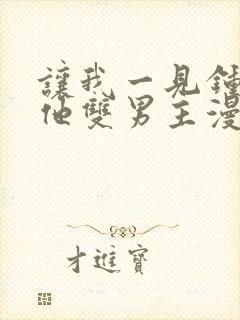 讓我一見鍾
他雙男主漫
才進寶